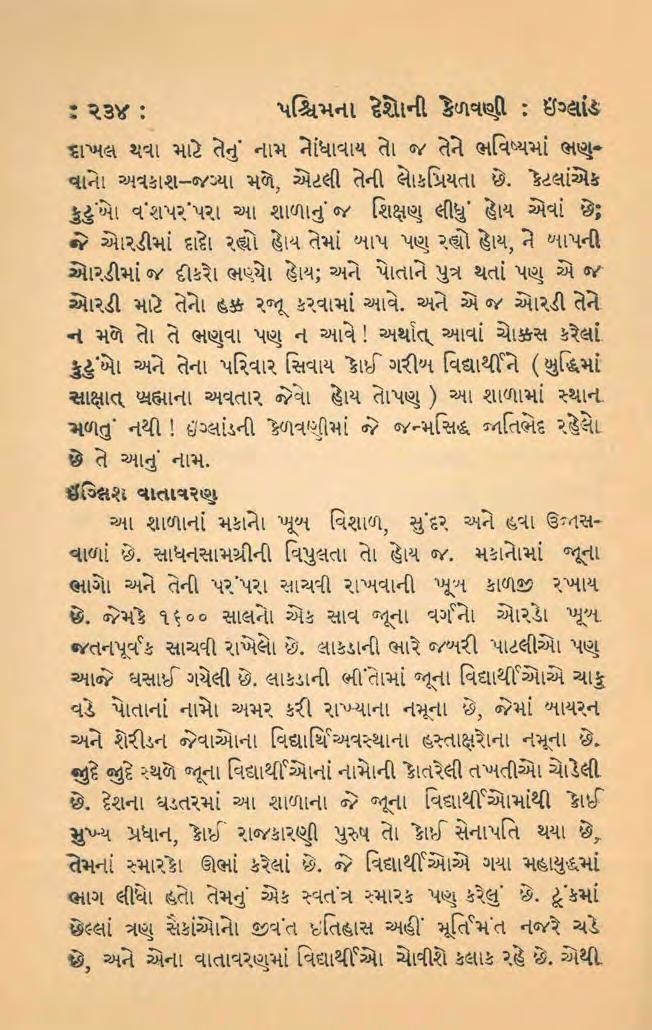 : ૨૩૪ : પશ્ચિમના દેશોની કેળવણી : ઇંગ્લાંડ
દાખલ થવા માટે તેનું નામ નોંધાવાય તો જ તેને ભવિષ્યમાં ભણ-
વાનો અવકાશ–જગ્યા મળે, એટલી તેની લોકપ્રિયતા છે. કેટલાંએક
કુટુંબો વંશપરંપરા આ શાળાનું જ શિક્ષણ લીધું હોય એવાં છે;
જે ઓરડીમાં દાદો રહ્યો હોય તેમાં બાપ પણ રહ્યો હોય, ને બાપની
ઓરડીમાં જ દીકરો ભણ્યો હોય; અને પોતાને પુત્ર થતાં પણ એ જ
ઓરડી માટે તેનો હક્ક રજૂ કરવામાં આવે. અને એ જ ઓરડી તેને
ન મળે તો તે ભણવા પણ ન આવે ! અર્થાત્ આવાં ચોક્કસ કરેલાં
કુટુંબો અને તેના પરિવાર સિવાય કોઈ ગરીબ વિદ્યાર્થીને ( બુદ્ધિમાં
સાક્ષાત્ બ્રહ્માના અવતાર જેવો હોય તોપણ ) આ શાળામાં સ્થાન
મળતું નથી ! ઇંગ્લાંડની કેળવણીમાં જે જન્મસિદ્ધ જાતિભેદ રહેલો
છે તે આનું નામ.
ઇંગ્લિશ વાતાવરણ
આ શાળાનાં મકાનો ખૂબ વિશાળ, સુંદર અને હવા ઉજાસ-
વાળાં છે. સાધનસામગ્રીની વિપુલતા તો હોય જ. મકાનોમાં જૂના
ભાગો અને તેની પરંપરા સાચવી રાખવાની ખૂબ કાળજી રખાય
છે. જેમકે ૧૬૦૦ સાલનો એક સાવ જૂના વર્ગનો ઓરડો ખૂબ
જતનપૂર્વક સાચવી રાખેલો છે. લાકડાની ભારે જબરી પાટલીઓ પણ
આજે ઘસાઈ ગયેલી છે. લાકડાની ભીંતોમાં જૂના વિદ્યાર્થીઓએ ચાકુ
વડે પોતાનાં નામો અમર કરી રાખ્યાના નમૂના છે, જેમાં બાયરન
અને શેરીડન જેવાઓના વિદ્યાર્થિઅવસ્થાના હસ્તાક્ષરોના નમૂના છે.
જુદે જુદે સ્થળે જૂના વિદ્યાર્થીઓનાં નામોની કોતરેલી તખતીઓ ચોડેલી
છે. દેશના ઘડતરમાં આ શાળાના જે જૂના વિદ્યાર્થીઓમાંથી કોઈ
મુખ્ય પ્રધાન, કોઈ રાજકારણી પુરુષ તો કોઈ સેનાપતિ થયા છે,
તેમનાં સ્મારકો ઊભાં કરેલાં છે. જે વિદ્યાર્થીઓએ ગયા મહાયુદ્ધમાં
ભાગ લીધો હતો તેમનું એક સ્વતંત્ર સ્મારક પણ કરેલું છે. ટૂંકમાં
છેલ્લાં ત્રણ સૈકાંઓનો જીવંત ઇતિહાસ અહીં મૂર્તિમંત નજરે ચડે
છે, અને એના વાતાવરણમાં વિદ્યાર્થીઓ ચોવીશે કલાક રહે છે. એથી